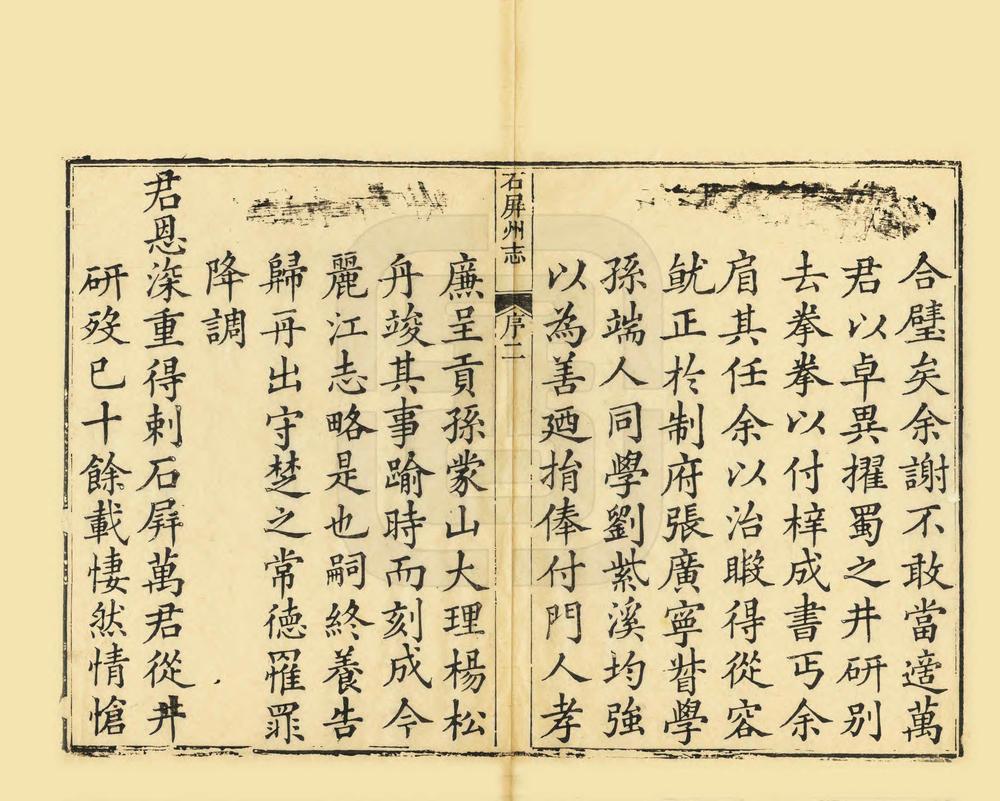 合璧矣余謝不敢當適萬
君以卓異擢蜀之井研别
去拳拳以付梓成書丐余
肩其任余以治賑得從容
就正於制府張廣寧督學
孫端人同學劉紫溪均強
以為善廼捐俸付門人孝
石屏州志
序二
廉呈貢孫蒙山大理楊松
舟竣其事踰時而刻成今
麗江志略是也嗣終養告
歸再出守楚之常德罹罪
降調
君恩深重得剌石屏萬君從井
研歿已十餘載悽然情愴